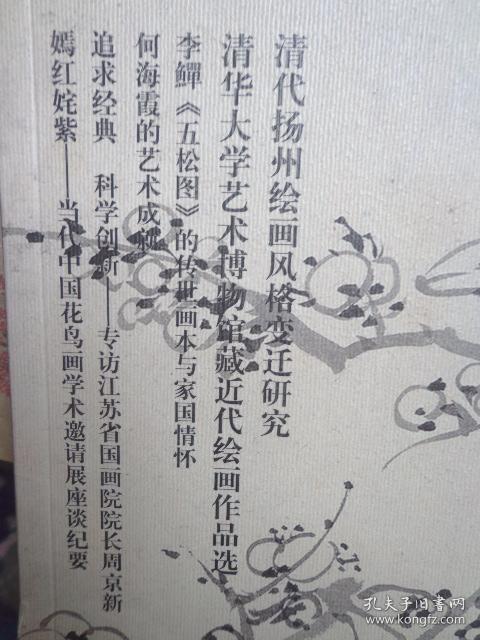 清代扬州绘画风格变迁研究
清华大学艺术博物馆藏近代绘画作品选
李鱓《五松图》的传世画本与家国情怀
何海霞的艺术成就
追求经典 科学创新——专访江苏省国画院院长周京新
嫣红姹紫——当代中国花鸟画学术邀请展座谈纪要
孔夫子旧书网
kongfz.com